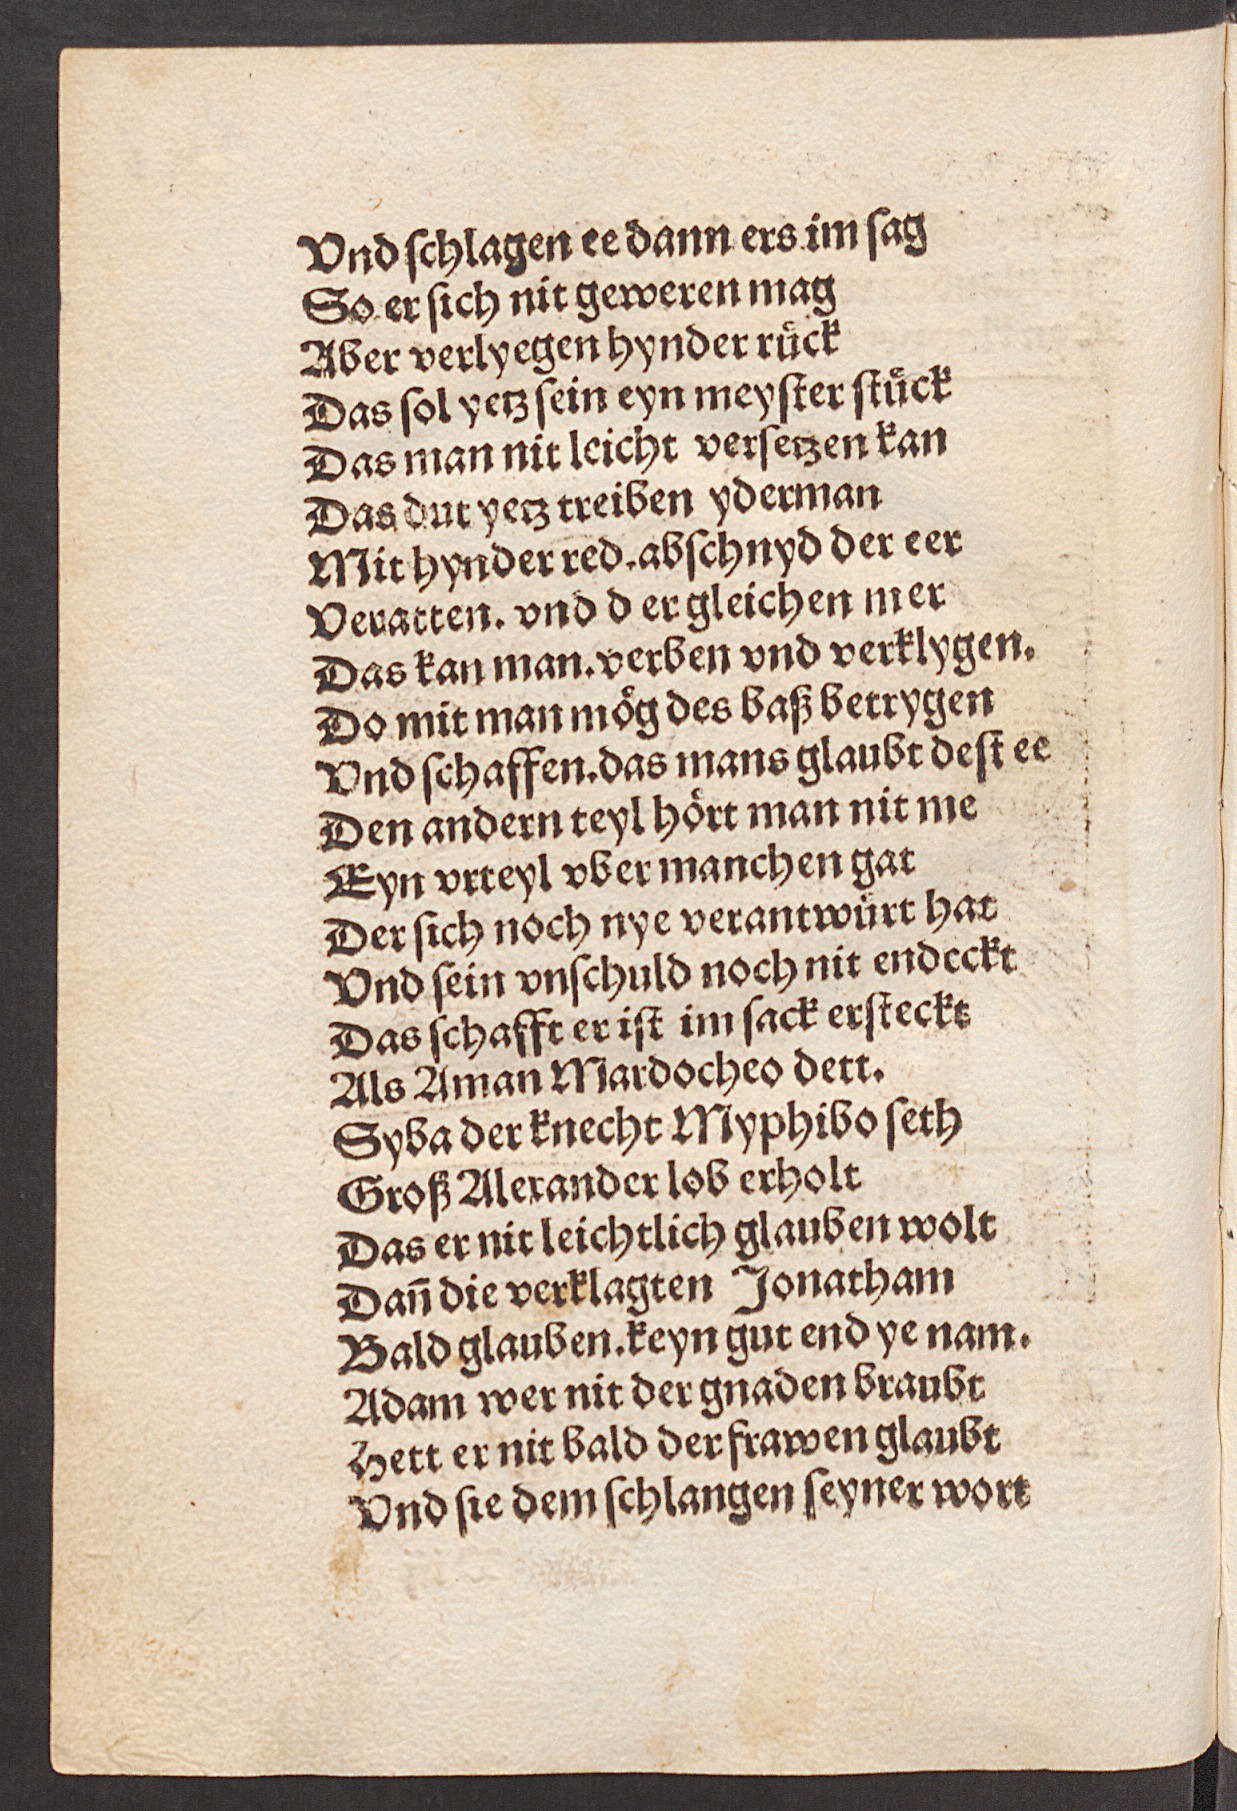 Vnd ſchlagen ee dann ers im ſag
So er ſich nit geweren mag
Aber verlyegen hynder rück
Das ſol yetz ſein eyn meyſter ſtück
Das man nit leicht verſetzen kan
Das dut yetz treiben yderman
Mit hynder red. abſchnyd der eer
Veratten. vnd d er gleichen mer
Das kan man. verben vnd verklygen.
Do mit man mög des baß betrygen
Vnd ſchaffen. das mans glaubt deſt ee
Den andern teyl hört man nit me
Eyn vrteyl vber manchen gat
Der ſich noch nye verantwürt hat
Vnd ſein vnſchuld noch nit endeckt
Das ſchafft er iſt im ſack erſteckt
Als Aman Mardocheo dett.
Syba der knecht Myphibo ſeth
Groß Alexander lob erholt
Das er nit leichtlich glauben wolt
Dañ die verklagten Jonatham
Bald glauben. keyn gut end ye nam.
Adam wer nit der gnaden braubt
Hett er nit bald der frawen glaubt
Vnd ſie dem ſchlangen ſeyner wort